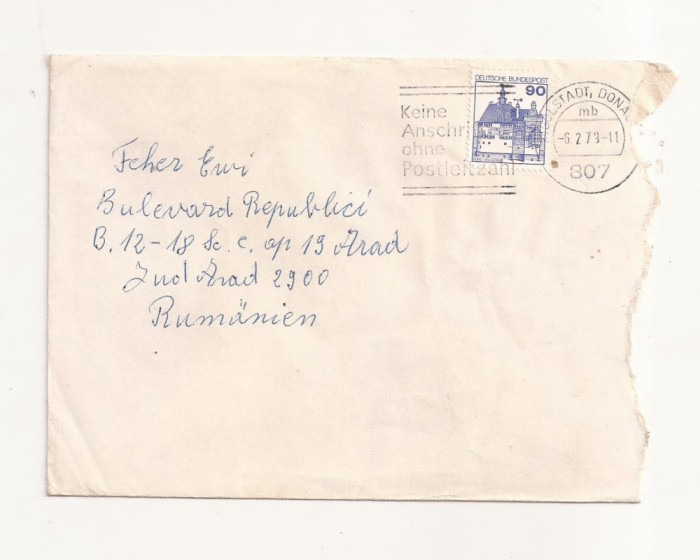 DEUTSCHE BUNDESPOST
90
Keine
Anschri
ohne
Postleitzahl
OLSTADT, DONA
mb
-6.2.79-11
807
Feher Ewi
Bulevard Republici
B. 12-18 Sc. c. ap 19 Arad
Jud Arad 2900
Rumänien